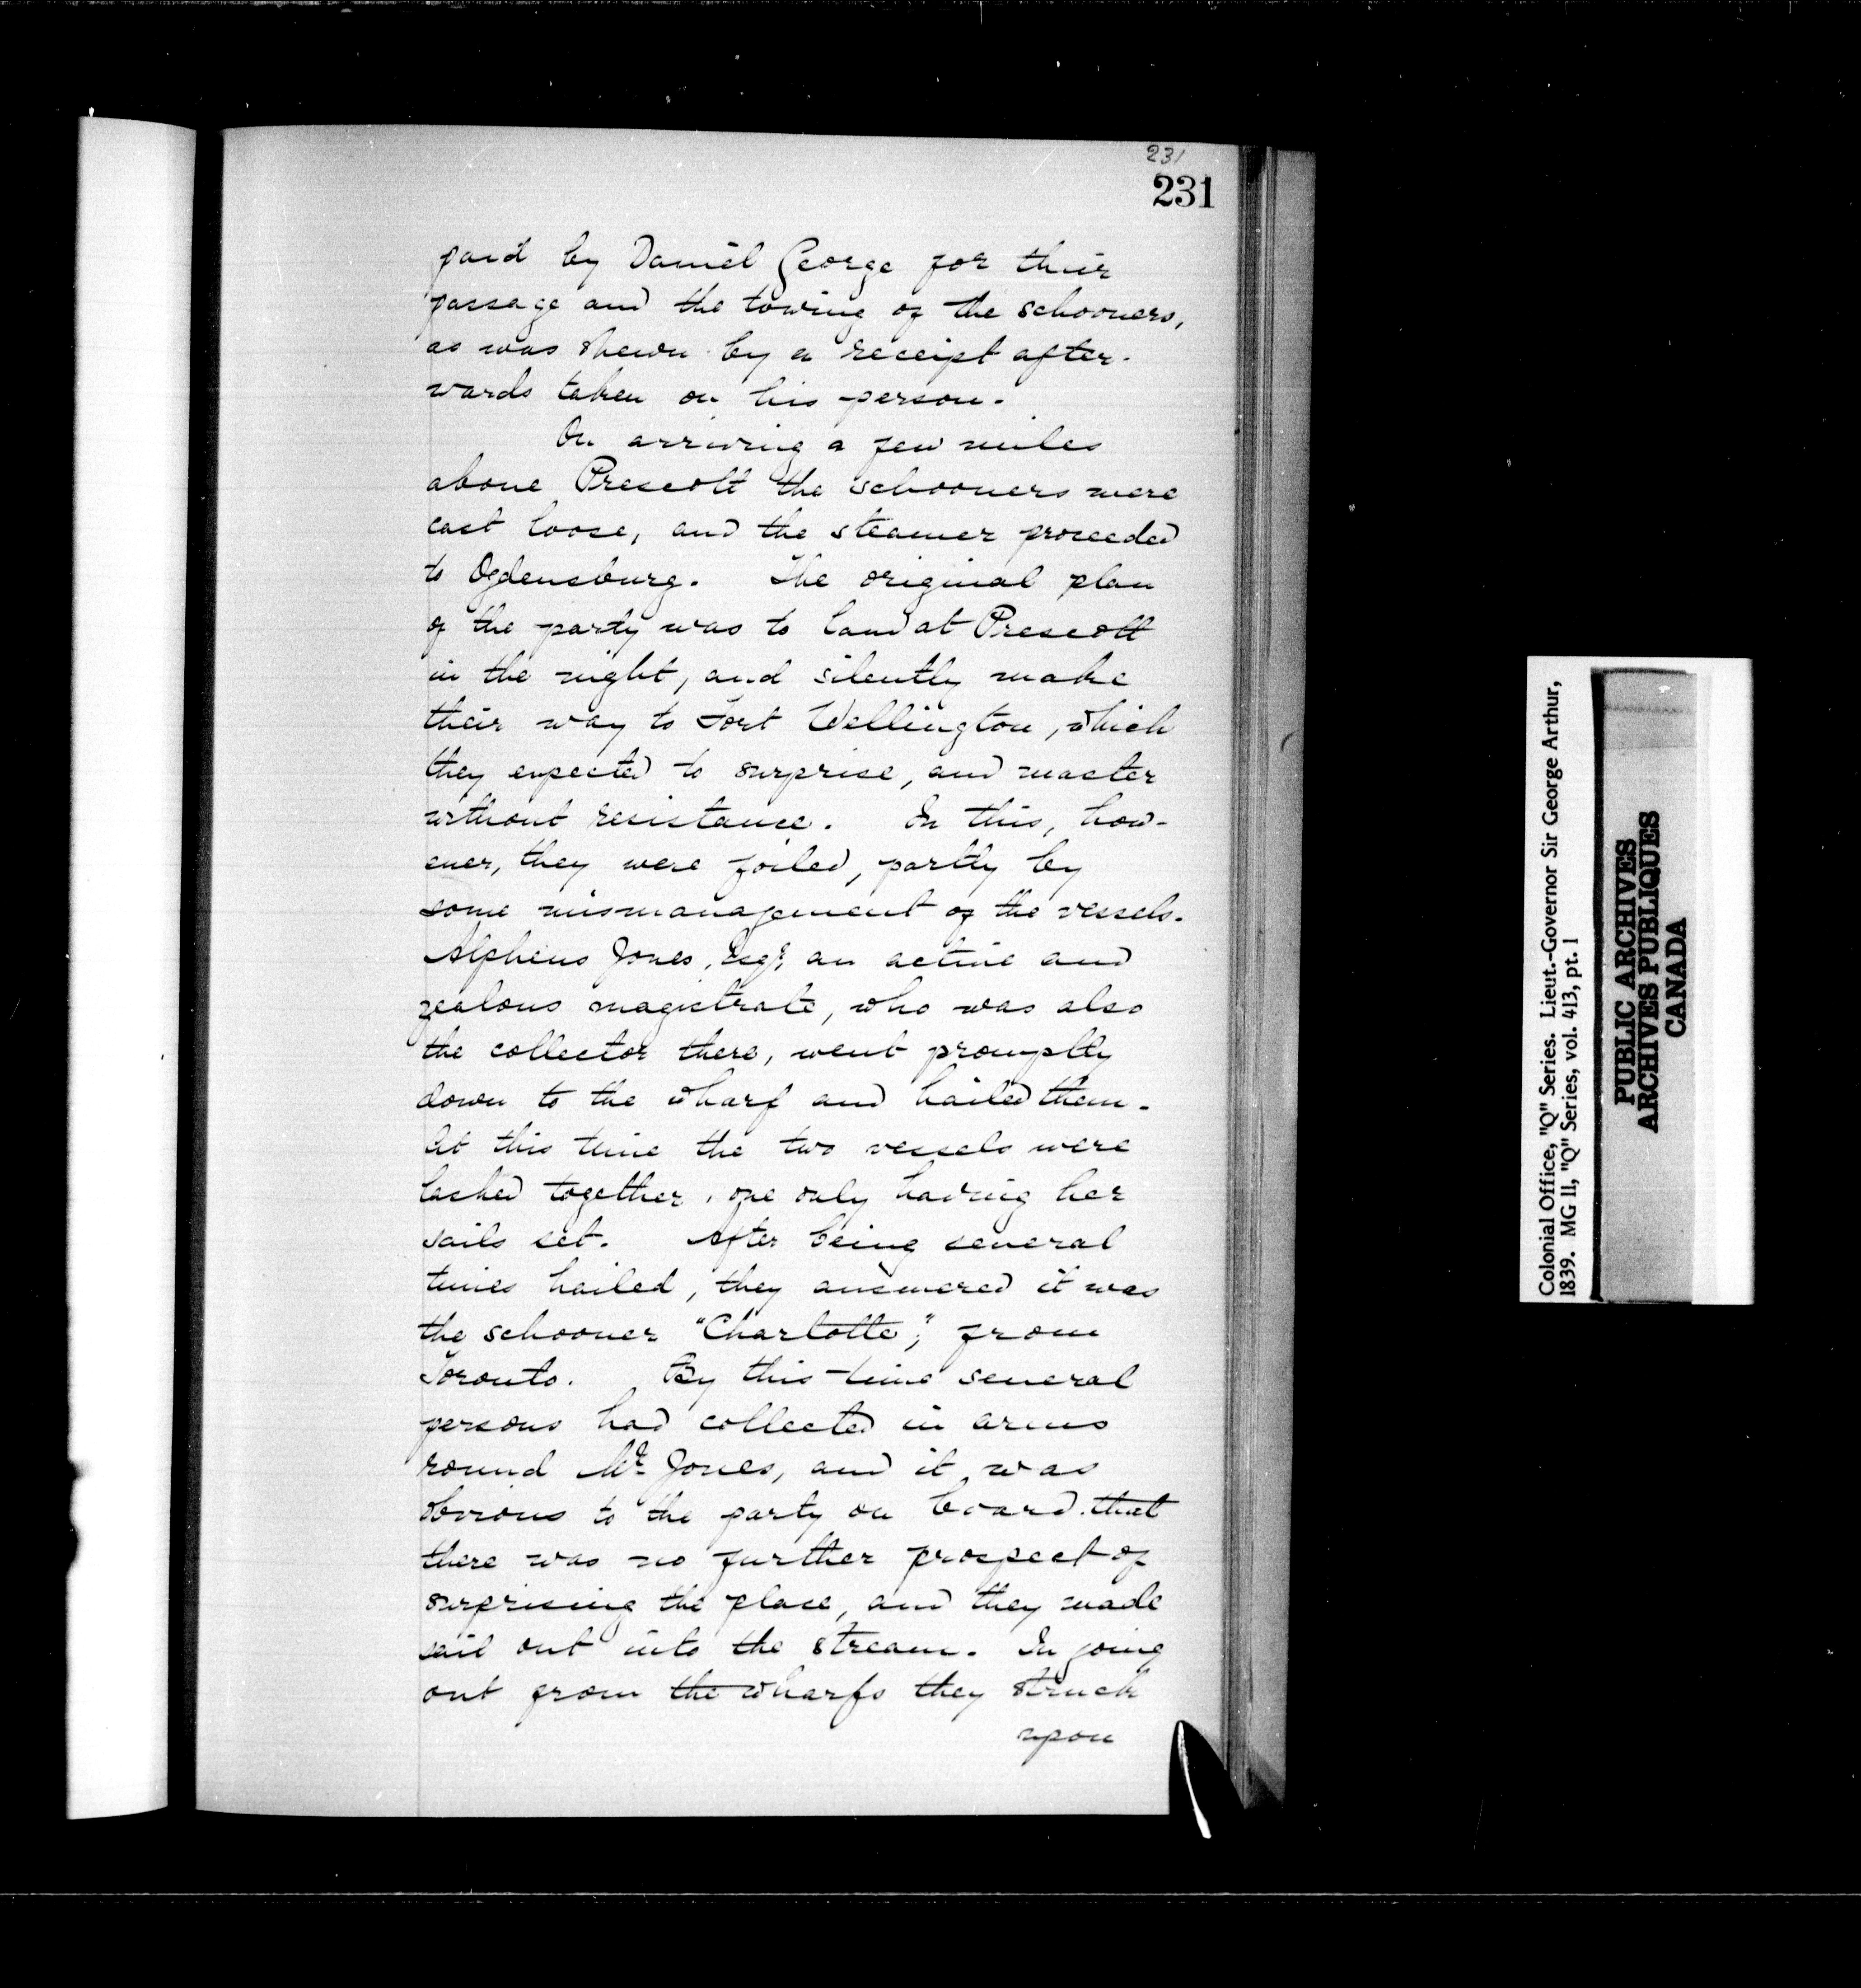 231
231
paid by Daniel George for their
passage and the towing of the schooners,
as was shewn by a receipt after-
wards taken on his person.
On arriving a few miles
above Prescott the schooners were
cast loose, and the steamer proceeded
to Ogdensburg. The original plan
of the party was to land at Prescott
in the night, and silently make
their way to Fort Wellington, which
they expected to surprise, and master
without resistance. In this, how-
ever, they were foiled, partly by
some mismanagement of the vessels.
Alpheus Jones, Esqr, an active and
zealous magistrate, who was also
the collector there, went promptly
down to the wharf and hailed them.
At this time the two vessels were
lashed together, one only having her
sails set. After being several
times hailed, they answered it was
the schooner "Charlotte", from
Toronto. By this time several
persons had collected in arms
round Mr Jones, and it was
obvious to the party on board that
there was no further prospect of
surprising the place, and they made
sail out into the stream. In going
out from the wharfs they struck
upon
Colonial Office, "Q" Series. Lieut.-Governor Sir George Arthur,
1839. MG 11, "Q" Series, vol. 413, pt. 1
PUBLIC ARCHIVES
ARCHIVES PUBLIQUES
CANADA